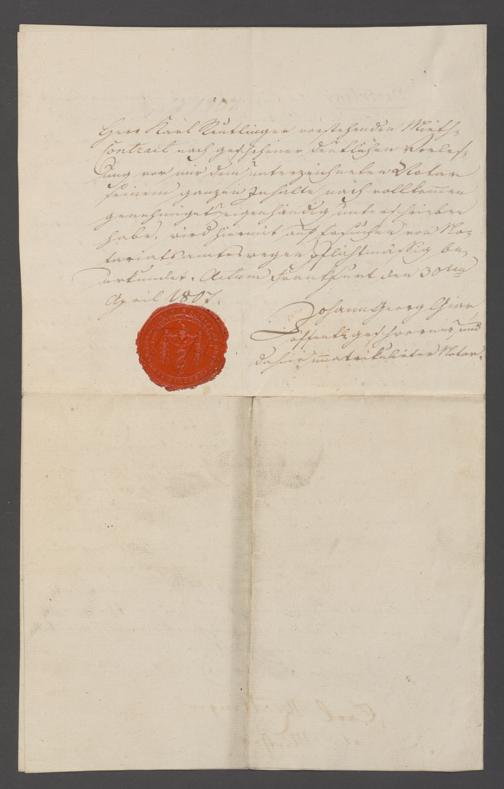 Herr Karl Reutlinger vorstehenden Mieth-
Contract nach geschehener deutlichen Verles-
sung vor mir dem unterzeichneten Notar
seinem ganzen Inhalte nach vollkommen
genehmiget eigenhändig unterschrieben
habe, wird hiermit auf Ersuchen von No-
tariatsamtswegen pflichtmässig be-
urkundet. Actum Frankfurt den 30ten
April 1807.
Johann Georg
öffentl. geschworner und
dahier immatrikulirter Notar.